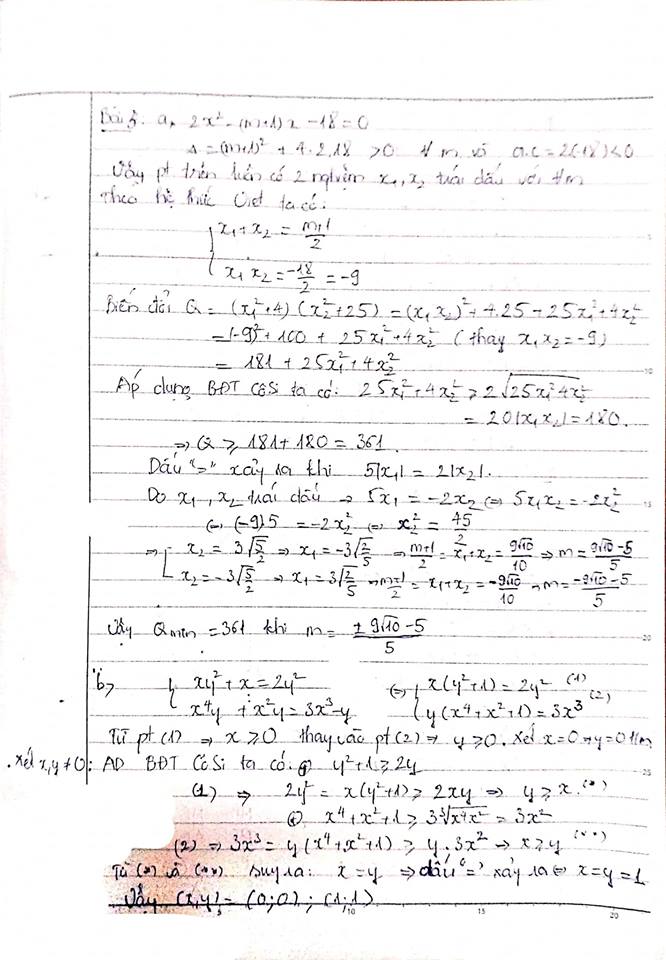 Bài 3: a, 2x² - (m+1)x - 18 = 0
Δ = (m+1)² + 4.2.18 > 0 ∀m vì a.c = 2(-18) < 0
Vậy pt trên luôn có 2 nghiệm x₁, x₂ trái dấu với ∀m
Theo hệ thức Viet ta có:
{ x₁ + x₂ = (m+1)/2
x₁x₂ = -18/2 = -9
Biến đổi Q = (x₁² + 4)(x₂² + 25) = (x₁x₂)² + 4.25 + 25x₁² + 4x₂²
= (-9)² + 100 + 25x₁² + 4x₂² (thay x₁x₂ = -9)
= 181 + 25x₁² + 4x₂²
Áp dụng BĐT CôSi ta có: 25x₁² + 4x₂² ≥ 2√(25x₁²4x₂²)
= 20|x₁x₂| = 180.
⇒ Q ≥ 181 + 180 = 361.
Dấu "=" xảy ra khi 5|x₁| = 2|x₂|.
Do x₁, x₂ trái dấu ⇒ 5x₁ = -2x₂ ⇔ 5x₁x₂ = -2x₂²
⇔ (-9)5 = -2x₂² ⇔ x₂² = 45/2
⇒ [ x₂ = 3√(5/2) ⇒ x₁ = -3√(2/5) ⇒ (m+1)/2 = x₁ + x₂ = 9√10/10 ⇒ m = (9√10 - 5)/5
x₂ = -3√(5/2) ⇒ x₁ = 3√(2/5) ⇒ (m+1)/2 = x₁ + x₂ = -9√10/10 ⇒ m = (-9√10 - 5)/5
Vậy Qmin = 361 khi m = (±9√10 - 5)/5
b, { xy² + x = 2y² ⇔ { x(y² + 1) = 2y² (1)
x⁴y + x²y = 3x³ - y y(x⁴ + x² + 1) = 3x³ (2)
Từ pt (1) ⇒ x ≥ 0 thay vào pt (2) ⇒ y ≥ 0. Xét x = 0 ⇒ y = 0
. Xét x, y ≠ 0: AD BĐT CôSi ta có: y² + 1 ≥ 2y
(1) ⇒ 2y² = x(y² + 1) ≥ 2xy ⇒ y ≥ x (*)
x⁴ + x² + 1 ≥ 3∛(x⁴x²) = 3x²
(2) ⇒ 3x³ = y(x⁴ + x² + 1) ≥ y.3x² ⇒ x ≥ y (**)
Từ (*) và (**) suy ra: x = y ⇒ dấu "=" xảy ra ⇔ x = y = 1
Vậy (x,y) = (0;0); (1;1)